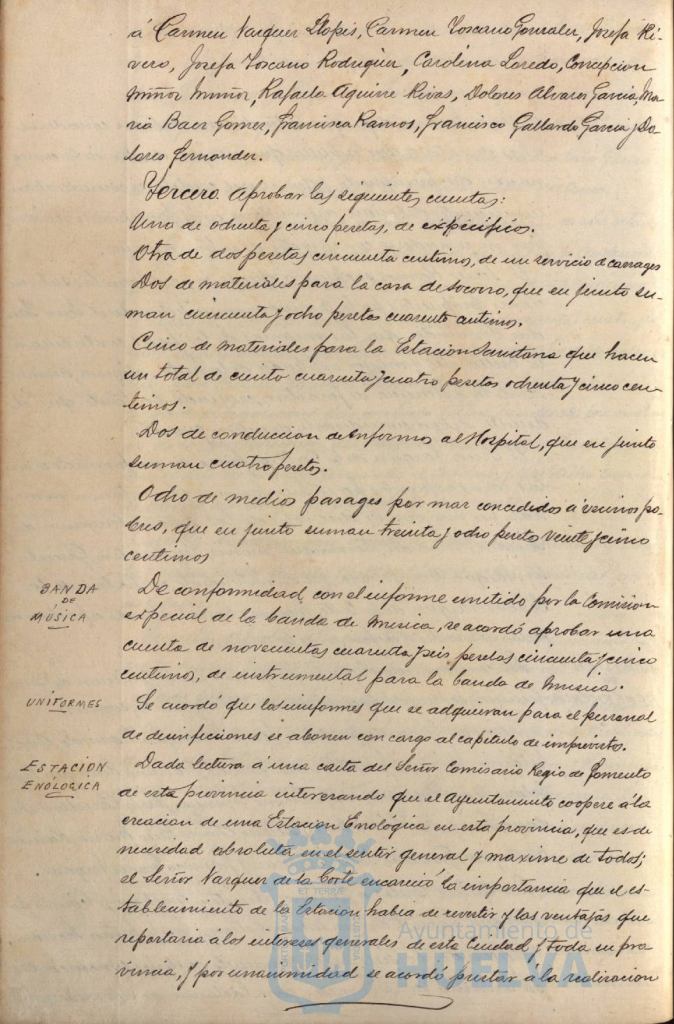 á Carmen Vazquez Llopis, Carmen Toscano Gonzalez, Josefa Ri-
vero, Josefa Toscano Rodriguez, Carolina Loredo, Concepcion
Muñoz Muñoz, Rafaela Aguirre Rivas, Dolores Alvarez Garcia, Ma-
ria Baez Gomez, Francisca Ramos, Francisco Gallardo Garcia y Do-
lores Fernandez.
Tercero. Aprobar las siguientes cuentas:
Una de ochenta y cinco pesetas, de específicos.
Otra de dos pesetas cincuenta centimos, de un servicio de carruages
Dos de materiales para la casa de socorro, que en junto su-
man cincuenta y ocho pesetas cuarenta centimos.
Cinco de materiales para la Estacion Sanitaria que hacen
un total de ciento cuarenta y cuatro pesetas ochenta y cinco cen-
timos.
Dos de conduccion de enfermos al Hospital, que en junto
suman cuatro pesetas.
Ocho de medios pasages por mar concedidos á vecinos po-
bres, que en junto suman treinta y ocho pesetas veinte y cinco
centimos
BANDA
DE
MÚSICA
De conformidad con el informe emitido por la Comision
especial de la banda de musica, se acordó aprobar una
cuenta de novecientas cuarenta y seis pesetas cincuenta y cinco
centimos, de instrumental para la banda de musica.
UNIFORMES
Se acordó que los uniformes que se adquieran para el personal
de desinfecciones se abonen con cargo al capitulo de imprevistos.
ESTACIÓN
ENOLÓGICA
Dada lectura á una carta del Señor Comisario Regio de Fomento
de esta provincia interesando que el Ayuntamiento coopere á la
creacion de una Estacion Enológica en esta provincia, que es de
necesidad absoluta en el sentir general y maxime de todos;
el Señor Vazquez de la Corte encareció la importancia que el es-
tablecimiento de la Estacion habia de revestir y las ventajas que
reportaria á los intereses generales de esta Ciudad y toda su pro-
vincia, y por unanimidad se acordó prestar á la realizacion
Ayuntamiento de
HUELVA